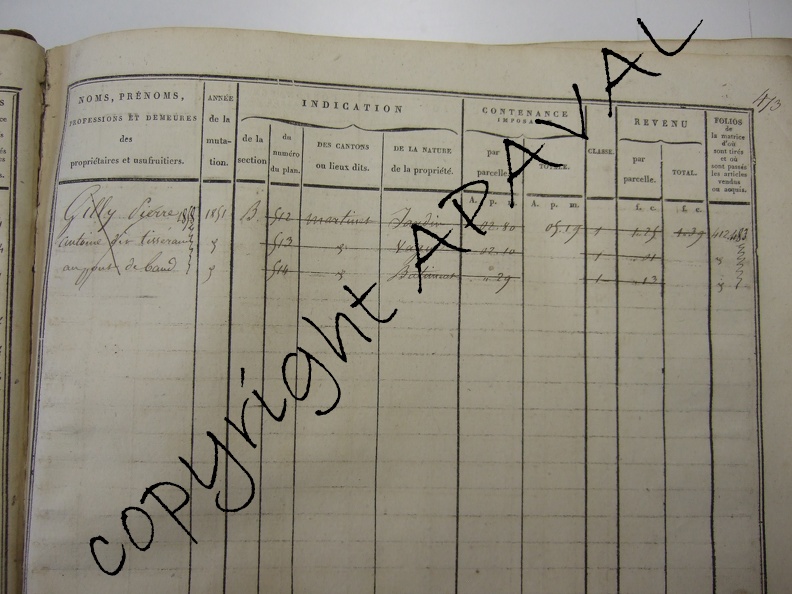 413
NOMS, PRÉNOMS,
PROFESSIONS ET DEMEURES
des
propriétaires et usufruitiers.
ANNÉE
de la
muta-
tion.
INDICATION
de la
section
du
numéro
du plan.
DES CANTONS
ou lieux dits.
DE LA NATURE
de la propriété.
CONTENANCE
IMPOSABLE
par
parcelle.
TOTALE.
CLASSE.
REVENU
par
parcelle.
TOTAL.
FOLIOS
de
la matrice
d'où
sont tirés
et où
sont passés
les articles
vendus
ou acquis.
A. p. A. p. m. f. c. f. c.
Gilly Pierre 1851 B. 512 martinet Jardin 02.80 05.19 1 1.25 1.39 412
antoine fils tisserand 513 02.10 1
au pont de baud. 514 Batiment .29 1 .13
copyright APAVAL